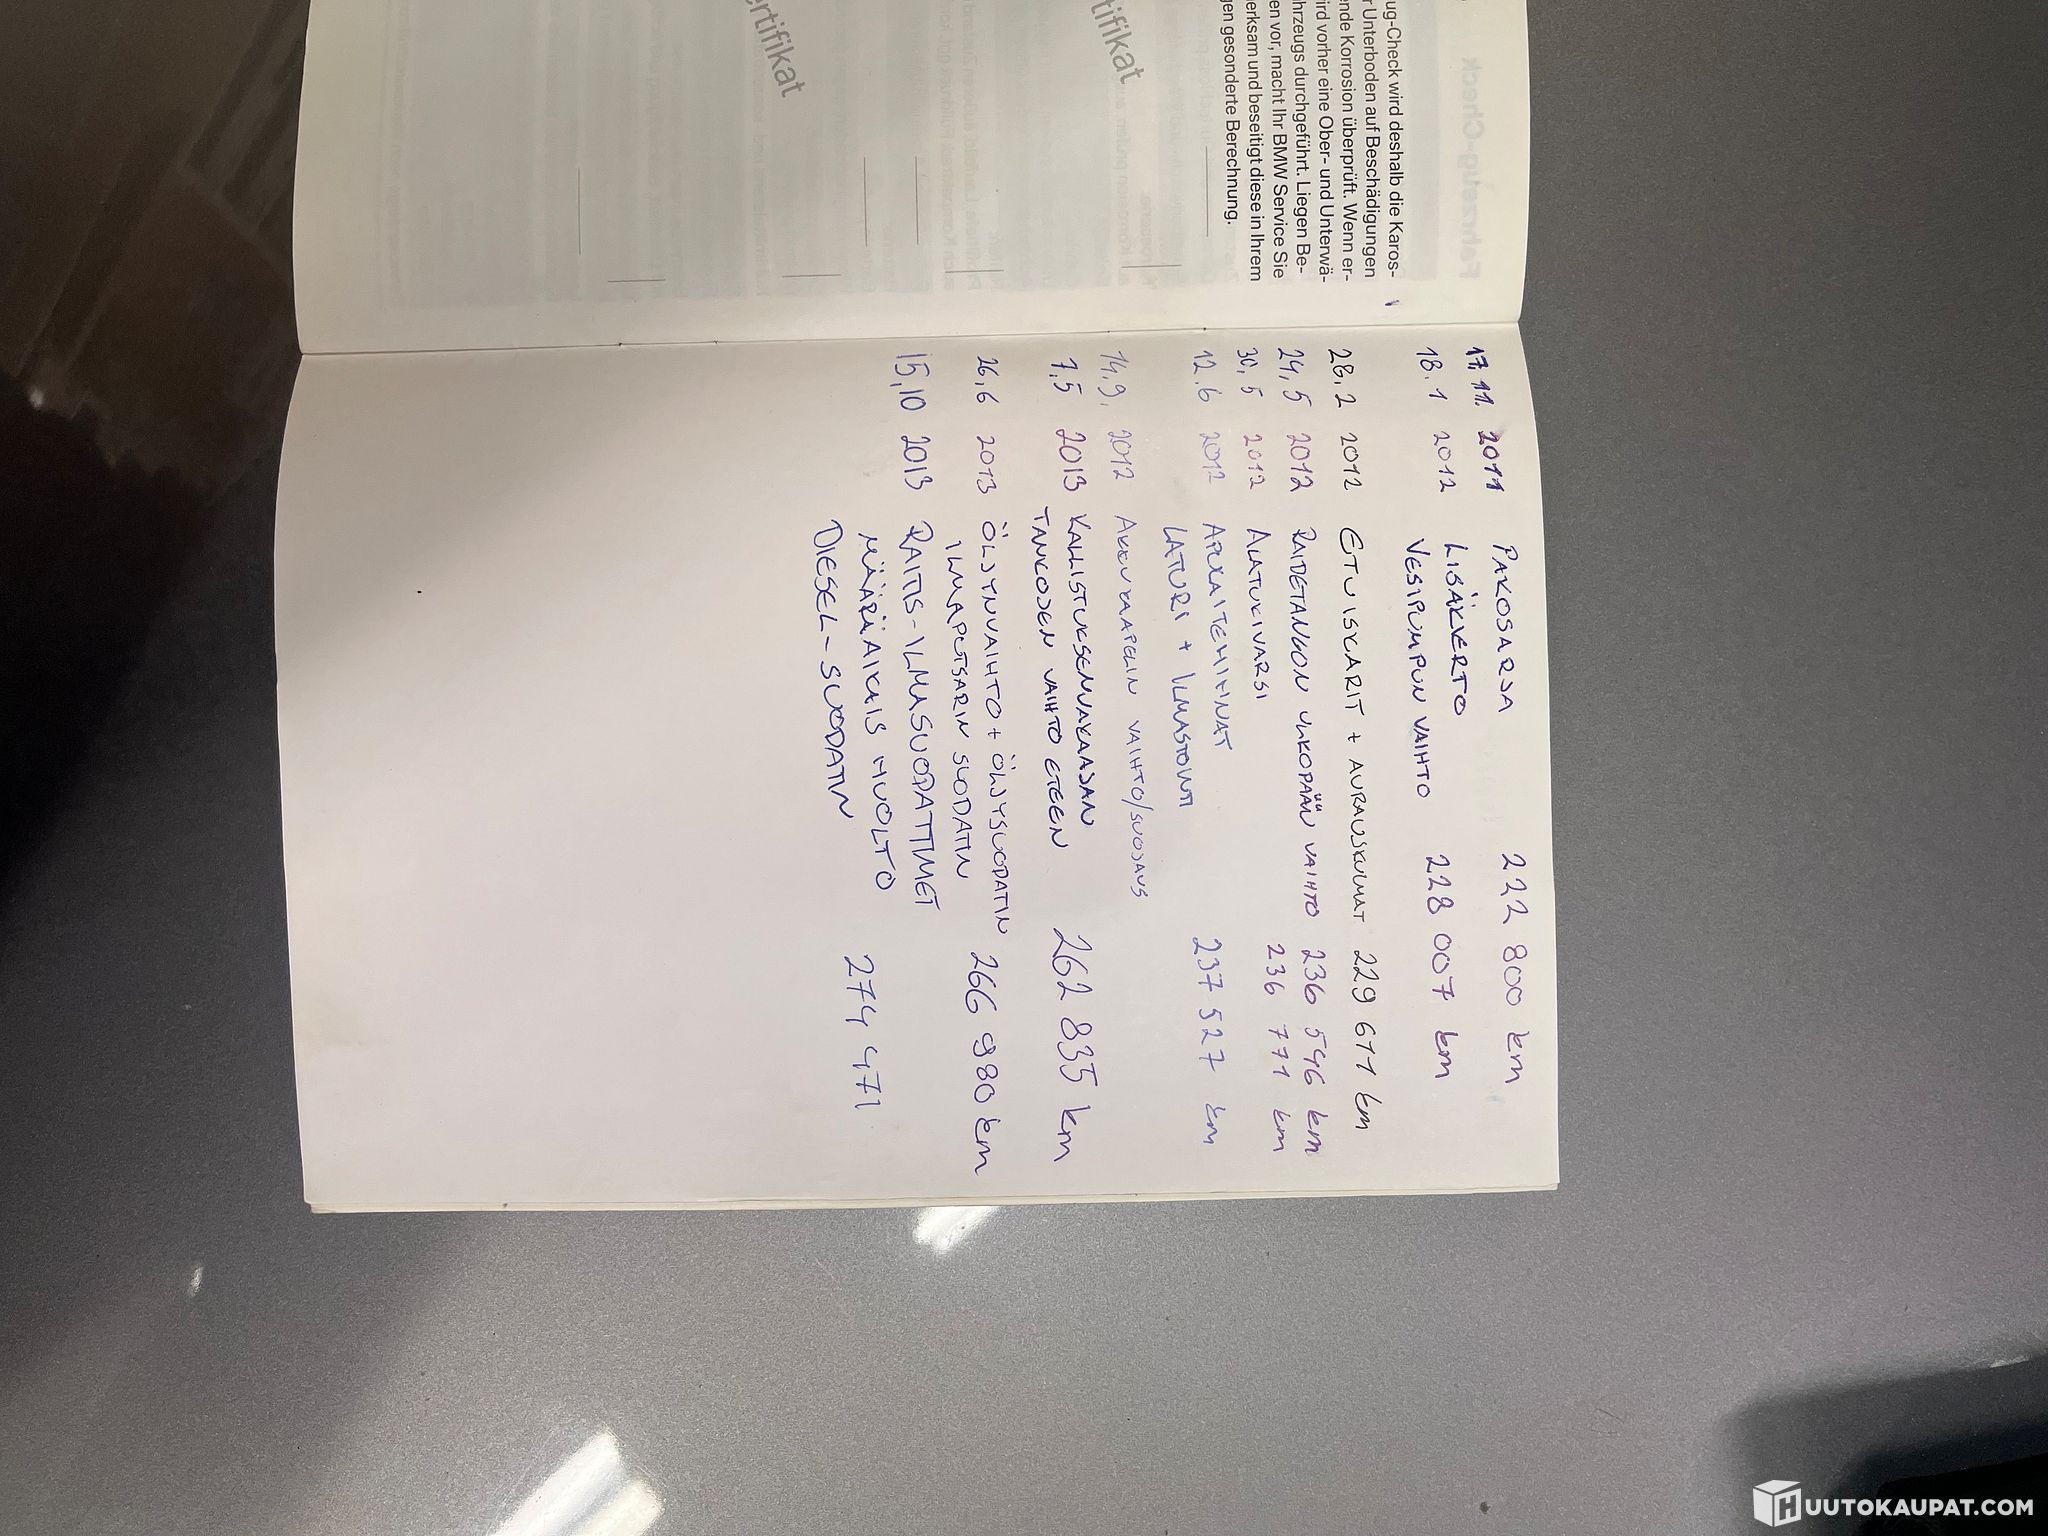 ug-Check wird deshalb die Karos-
r Unterboden auf Beschädigungen
ende Korrosion überprüft. Wenn er-
ird vorher eine Ober- und Unterwä-
hrzeugs durchgeführt. Liegen Be-
en vor, macht Ihr BMW Service Sie
erksam und beseitigt diese in Ihrem
gen gesonderte Berechnung.
tifikat
ertifikat
17.11. 2011 PAKOSARJA 222 800 km
18.1 2012 LISÄKIERTO
VESIPUMPUN VAIHTO 228 007 km
28.2 2012 ETUISKARIT + AURAUSKULMAT 229 611 km
24,5 2012 RAIDETANGON ULKOPÄÄN VAIHTO 236 546 km
30,5 2012 ALATUKIVARSI 236 771 km
12.6 2012 APULAITEHIHNAT
LATURI + ILMASTOINTI 237 527 km
14.9. 2012 AKKUKAAPELIN VAIHTO/SUOJAUS
7,5 2013 KALLISTUKSENVAKAAJAN
TANKOJEN VAIHTO ETEEN 262 835 km
26,6 2013 ÖLJYNVAIHTO + ÖLJYSUODATIN
ILMAPUTSARIN SUODATIN 266 980 km
15,10 2013 RAITIS-ILMASUODATTIMET
MÄÄRÄAIKAIS HUOLTO
DIESEL-SUODATIN 274 471
HUUTOKAUPAT.COM